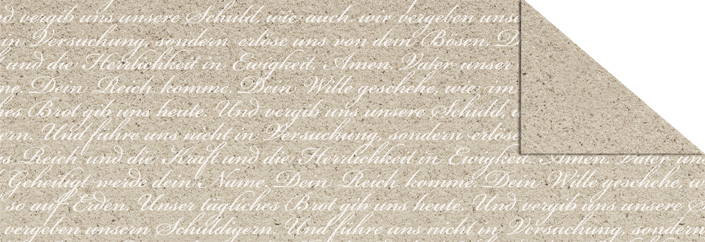 d vergib uns unsere Schuld, wie auch wir vergeben unse
in Versuchung, sondern erlöse uns von dem Bösen. D
und die Herrlichkeit in Ewigkeit. Amen. Vater unser
me. Dein Reich komme. Dein Wille geschehe, wie im
hes Brot gib uns heute. Und vergib uns unsere Schuld, u
ern. Und führe uns nicht in Versuchung, sondern erlöse
s Reich und die Kraft und die Herrlichkeit in Ewigkeit. Amen. Vater un
Geheiligt werde dein Name. Dein Reich komme. Dein Wille geschehe, w
so auf Erden. Unser tägliches Brot gib uns heute. Und vergib uns unsere S
vergeben unsern Schuldigern. Und führe uns nicht in Versuchung, sondern